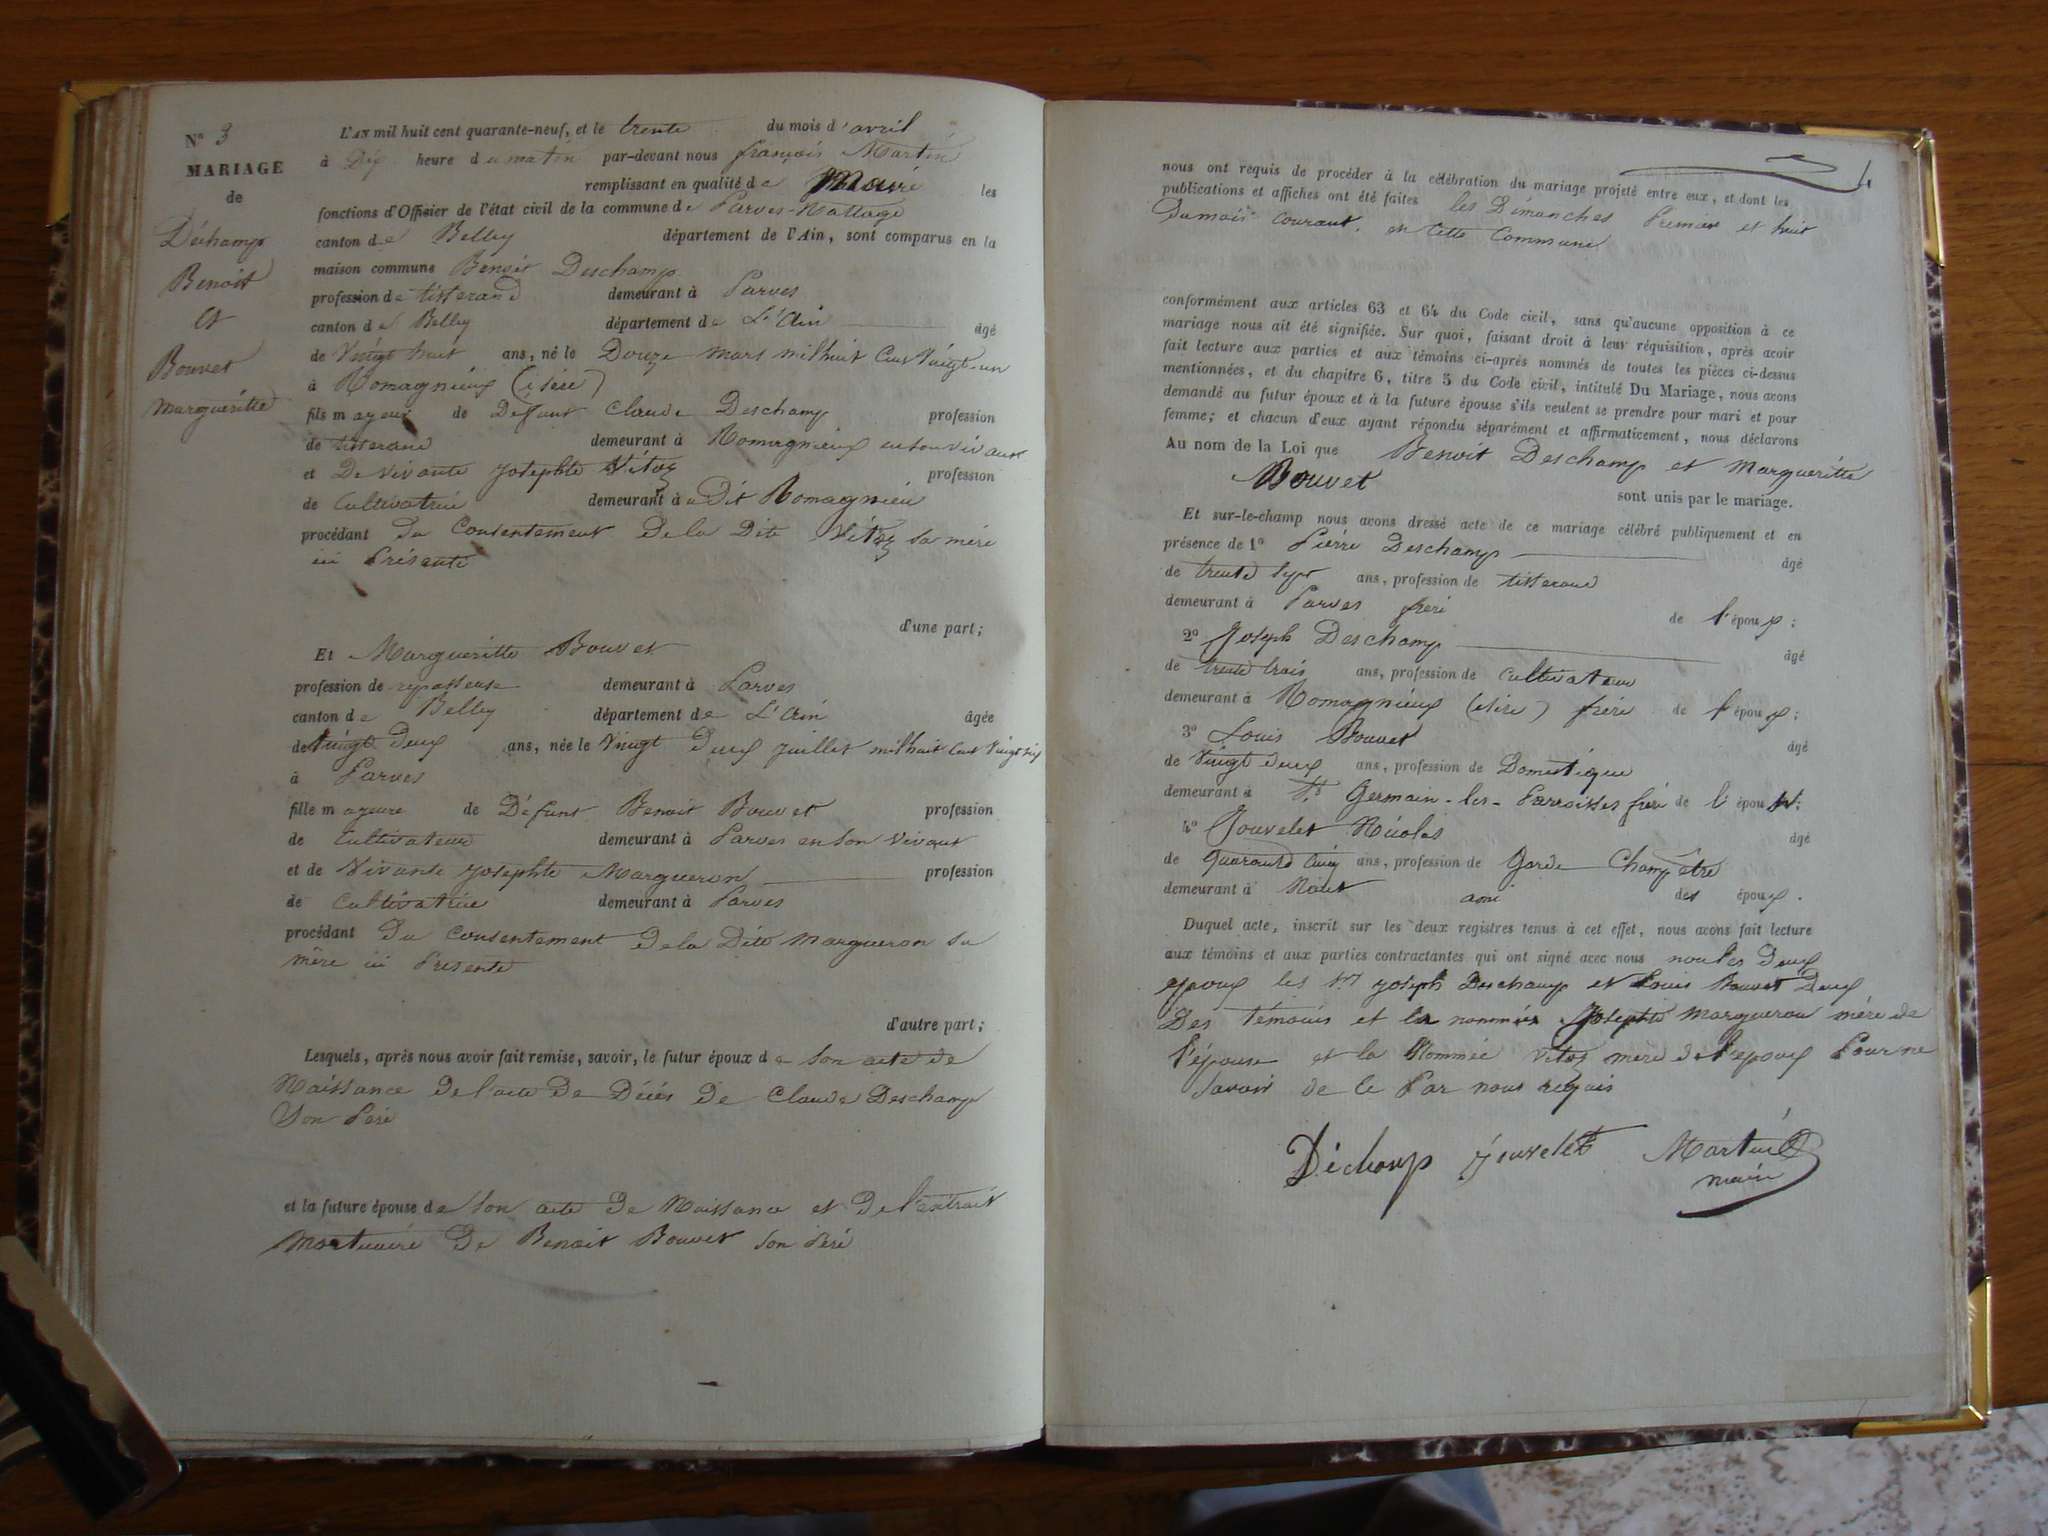 Nº 3
MARIAGE
de
Déchamp
Benoit
et
Bouvet
Margueritte
L'AN mil huit cent quarante-neuf, et le trente du mois d'avril
à Dix heure du matin par-devant nous françois Martin
remplissant en qualité de Maire les
fonctions d'Officier de l'état civil de la commune de Parves-Nattage
canton de Belley département de l'Ain, sont comparus en la
maison commune Benoit Deschamp
profession de tisserand demeurant à Parves
canton de Belley département de L'Ain âgé
de Vingt huit ans, né le Douze mars mil huit Cent Vingt-un
à Romagnieux (isère)
fils majeur de Défunt Claude Deschamp profession
de tisserand demeurant à Romagnieux en son vivant
et De vivante Josephte Vitoz profession
de Cultivatrice demeurant à u Dit Romagnieu
procédant Du Consentement De la Dite Vitoz sa mére
ici Présente
d'une part;
Et Margueritte Bouvet
profession de repasseuse demeurant à Parves
canton de Belley département de L'Ain âgée
de Vingt Deux ans, née le Vingt Deux juillet mil huit Cent Vingt six
à Parves
fille majeure de Défunt Benoit Bouvet profession
de Cultivateur demeurant à Parves en son vivant
et de Vivante Josephte Margueron profession
de Cultivatrice demeurant à Parves
procédant Du Consentement De la Dite Margueron sa
mère ici Présente
d'autre part;
Lesquels, après nous avoir fait remise, savoir, le futur époux de son acte de
Naissance De l'acte De Décés De Claude Deschamp
Son Péré
et la future épouse de son acte De Naissance et De l'extrait
Mortuaire De Benoit Bouvet son Péré
4
nous ont requis de procéder à la célébration du mariage projeté entre eux, et dont les
publications et affiches ont été faites les Dimanches Premier et huit
Du mois Courant, en Cette Commune
conformément aux articles 63 et 64 du Code civil, sans qu'aucune opposition à ce
mariage nous ait été signifiée. Sur quoi, faisant droit à leur réquisition, après avoir
fait lecture aux parties et aux témoins ci-après nommés de toutes les pièces ci-dessus
mentionnées, et du chapitre 6, titre 5 du Code civil, intitulé Du Mariage, nous avons
demandé au futur époux et à la future épouse s'ils veulent se prendre pour mari et pour
femme; et chacun d'eux ayant répondu séparément et affirmativement, nous déclarons
Au nom de la Loi que Benoit Deschamp et Margueritte
Bouvet
sont unis par le mariage.
Et sur-le-champ nous avons dressé acte de ce mariage célébré publiquement et en
présence de 1º Piérre Deschamp âgé
de trente Sept ans, profession de tisserand
demeurant à Parves frére de l'époux;
2º Joseph Deschamp âgé
de trente trois ans, profession de Cultivateur
demeurant à Romagnieux (isère) frére de l'époux;
3º Louis Bouvet âgé
de Vingt deux ans, profession de Domestique
demeurant à St Germain-les-Parroisses frére de l'épouse;
4º Jouvelet Nicolas âgé
de Quarante Cinq ans, profession de Garde Champêtre
demeurant à ami des époux.
Duquel acte, inscrit sur les deux registres tenus à cet effet, nous avons fait lecture
aux témoins et aux parties contractantes qui ont signé avec nous non les Deux
époux les Srs Joseph Deschamp et Louis Bouvet Deux
Des témoins et la nommée Josephte Margueron mére de
l'épouse et la Nommée Vitoz mére de l'époux Pour ne
Savoir de ce Par nous requis
Déchamp Jouvelet Martin
maire